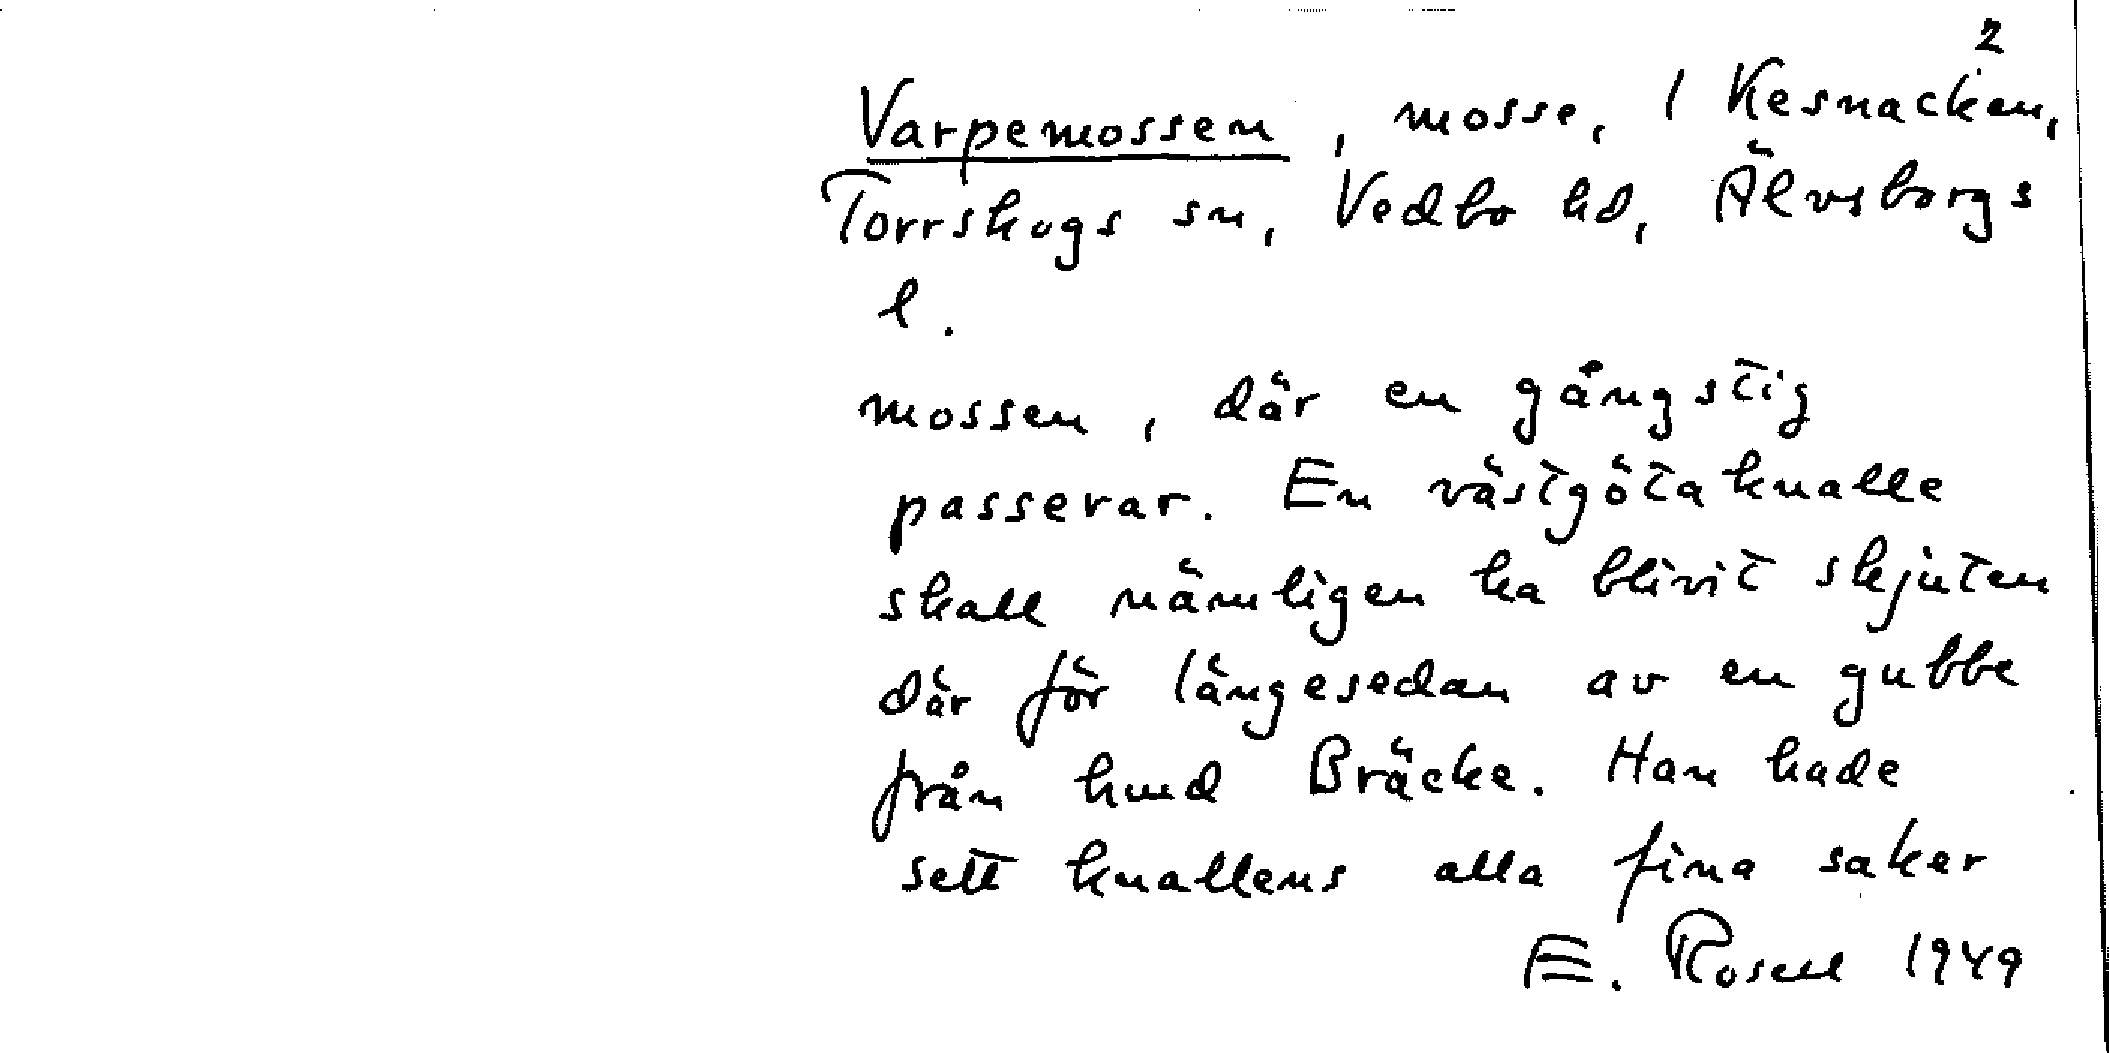 2
Varpemossen, mosse, 1 Kesnacken,
Torrskogs sn, Vedbo hd, Älvsborgs
l.
mossen, där en gångstig
passerar. En västgötaknalle
skall nämligen ha blivit skjuten
där för längesedan av en gubbe
från hmd Bräcke. Han hade
sett knallens alla fina saker
E. Rosell 1949